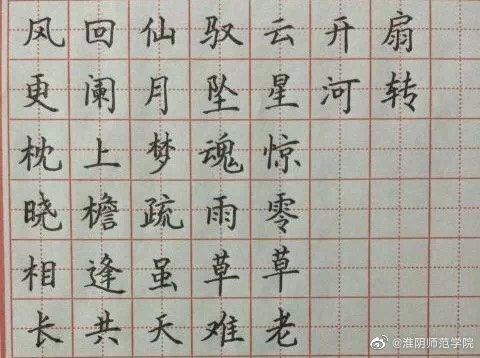 风回仙驭云开扇
更阑月坠星河转
枕上梦魂惊
晓檐疏雨零
相逢虽草草
长共天难老
@淮阴师范学院